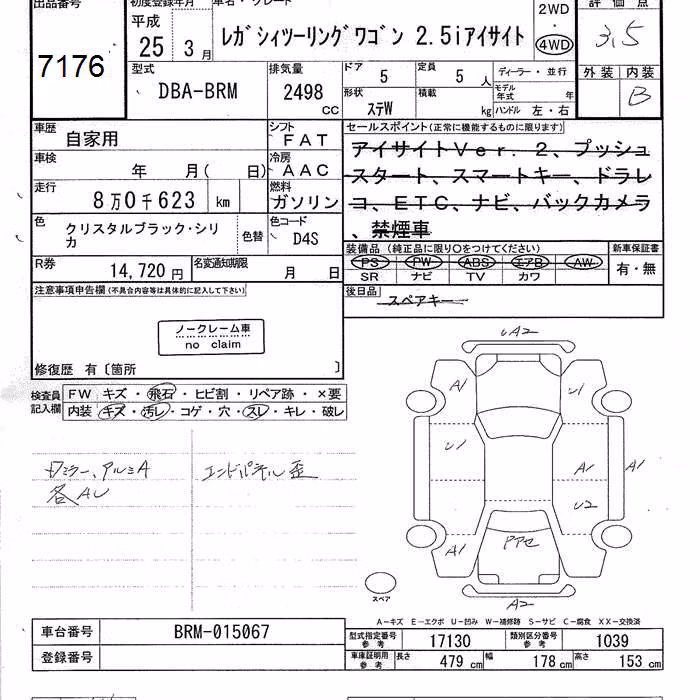 出品番号
7176
初度登録年月
平成
25 3月
車名・グレード
レガシィツーリングワゴン 2.5iアイサイト
2WD
4WD
評価点
3.5
型式
DBA-BRM
排気量
2498 CC
ドア 5
定員 5 人
ディーラー・並行
形状 ステW
積載 kg
モデル年式 年
ハンドル 左・右
外装 内装
B
車歴 自家用
シフト FAT
車検 年 月( 日)
冷房 AAC
走行 8万0千623 km
燃料 ガソリン
色 クリスタルブラック・シリカ
色替
色コード D4S
R券 14,720円
名変通知期限 月 日
セールスポイント(正常に機能するものに限ります)
アイサイトVer.2、プッシュ
スタート、スマートキー、ドラレ
コ、ETC、ナビ、バックカメラ
、禁煙車
装備品 (純正品に限り○をつけてください)
PS・PW・ABS・エアB・AW
SR・ナビ・TV・カワ
新車保証書
有・無
後日品 スペアキー
注意事項申告欄(不具合内容等は具体的に記入して下さい)
ノークレーム車
no claim
修復歴 有〔箇所 〕
検査員記入欄
FW キズ・飛石・ヒビ割・リペア跡・×要
内装 キズ・汚レ・コゲ・穴・スレ・キレ・破レ
ミラー、アルミA
各AU
エンドパネル歪
UA2
A1
U1
U1
A1
A1
U2
A1
アアセ
A2
スペア
A-キズ E-エクボ U-凹み W-補修跡 S-サビ C-腐食 XX-交換済
車台番号 BRM-015067
登録番号
型式指定番号参考 17130
類別区分番号参考 1039
車庫証明用参考 長さ 479 cm 幅 178 cm 高さ 153 cm